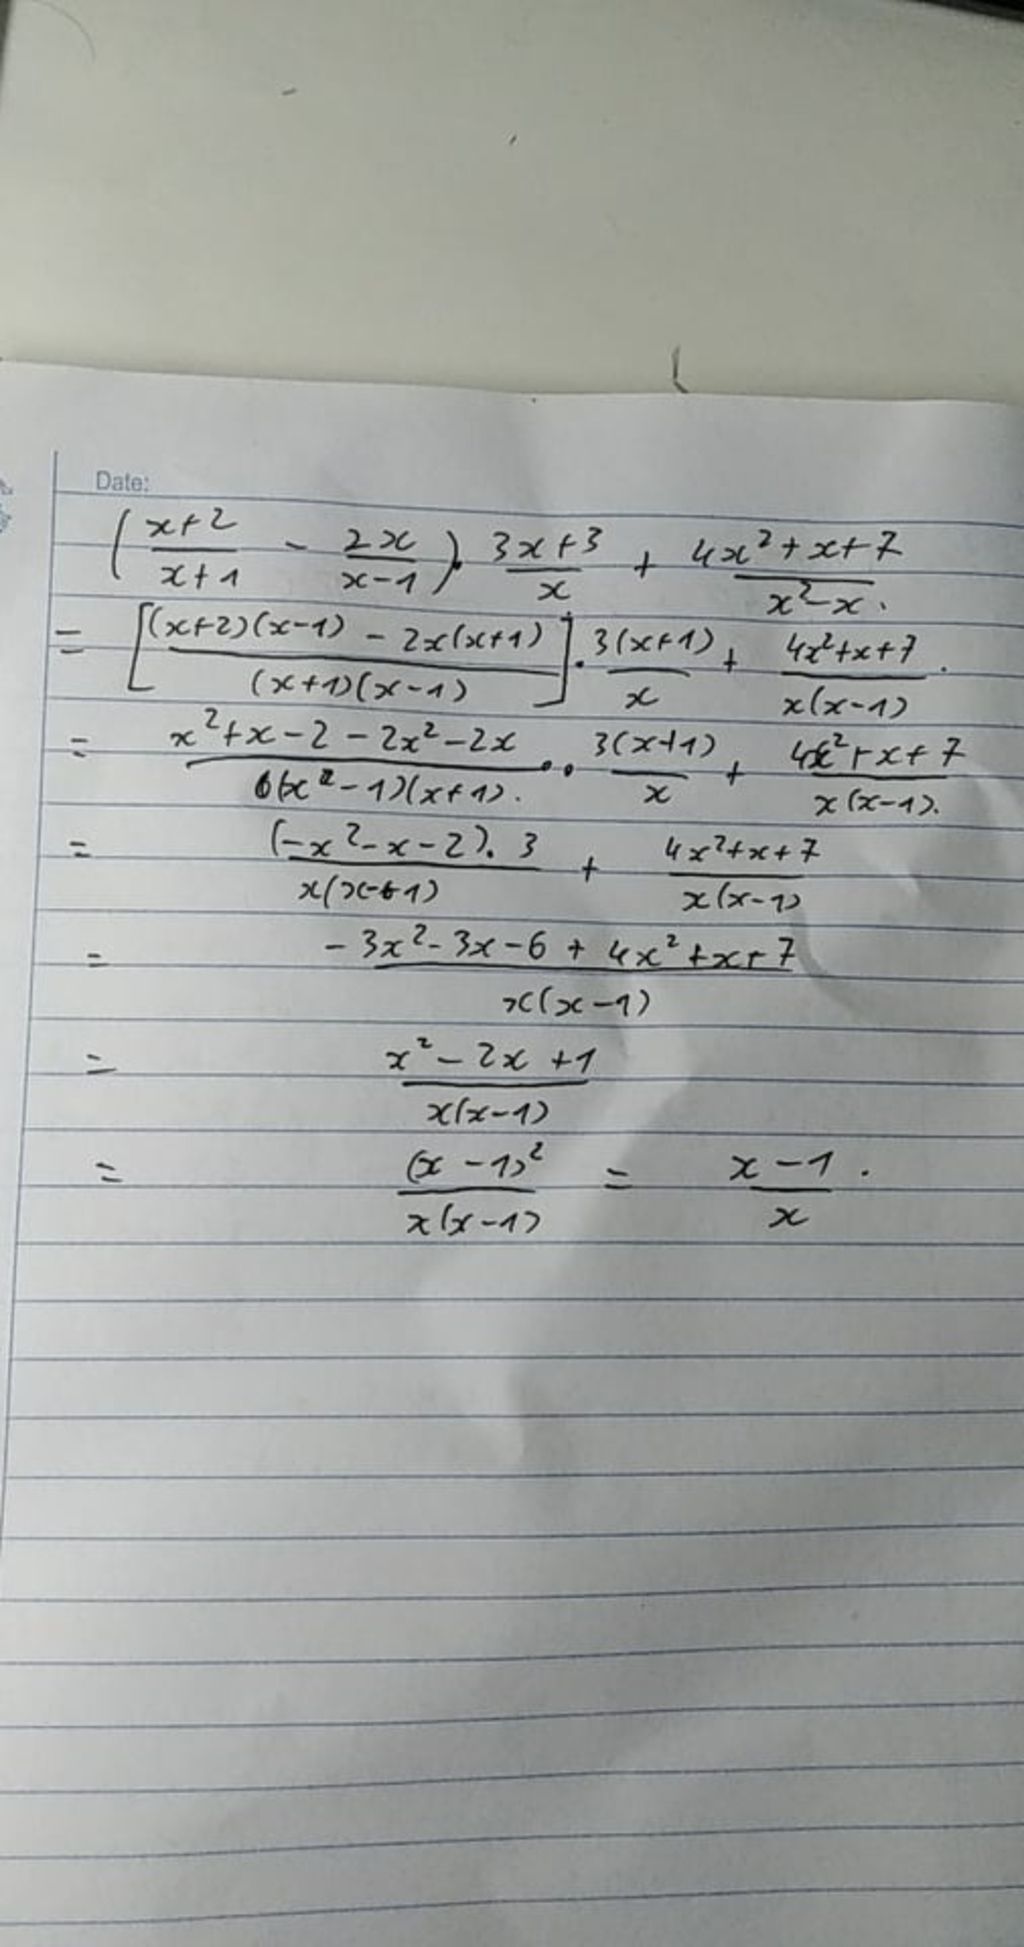 Date:
(x+2/x+1 - 2x/x-1). 3x+3/x + 4x²+x+7/x²-x.
= [(x+2)(x-1) - 2x(x+1)/(x+1)(x-1)]. 3(x+1)/x + 4x²+x+7/x(x-1).
= x²+x-2-2x²-2x/(x-1)(x+1). . 3(x+1)/x + 4x²+x+7/x(x-1).
= (-x²-x-2). 3/x(x-1) + 4x²+x+7/x(x-1)
= -3x²-3x-6 + 4x²+x+7/x(x-1)
= x²-2x+1/x(x-1)
= (x-1)²/x(x-1) = x-1/x.